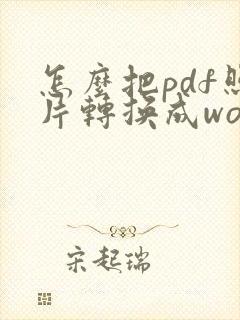 怎麼把pdf照
片轉換成wo
宋起瑞